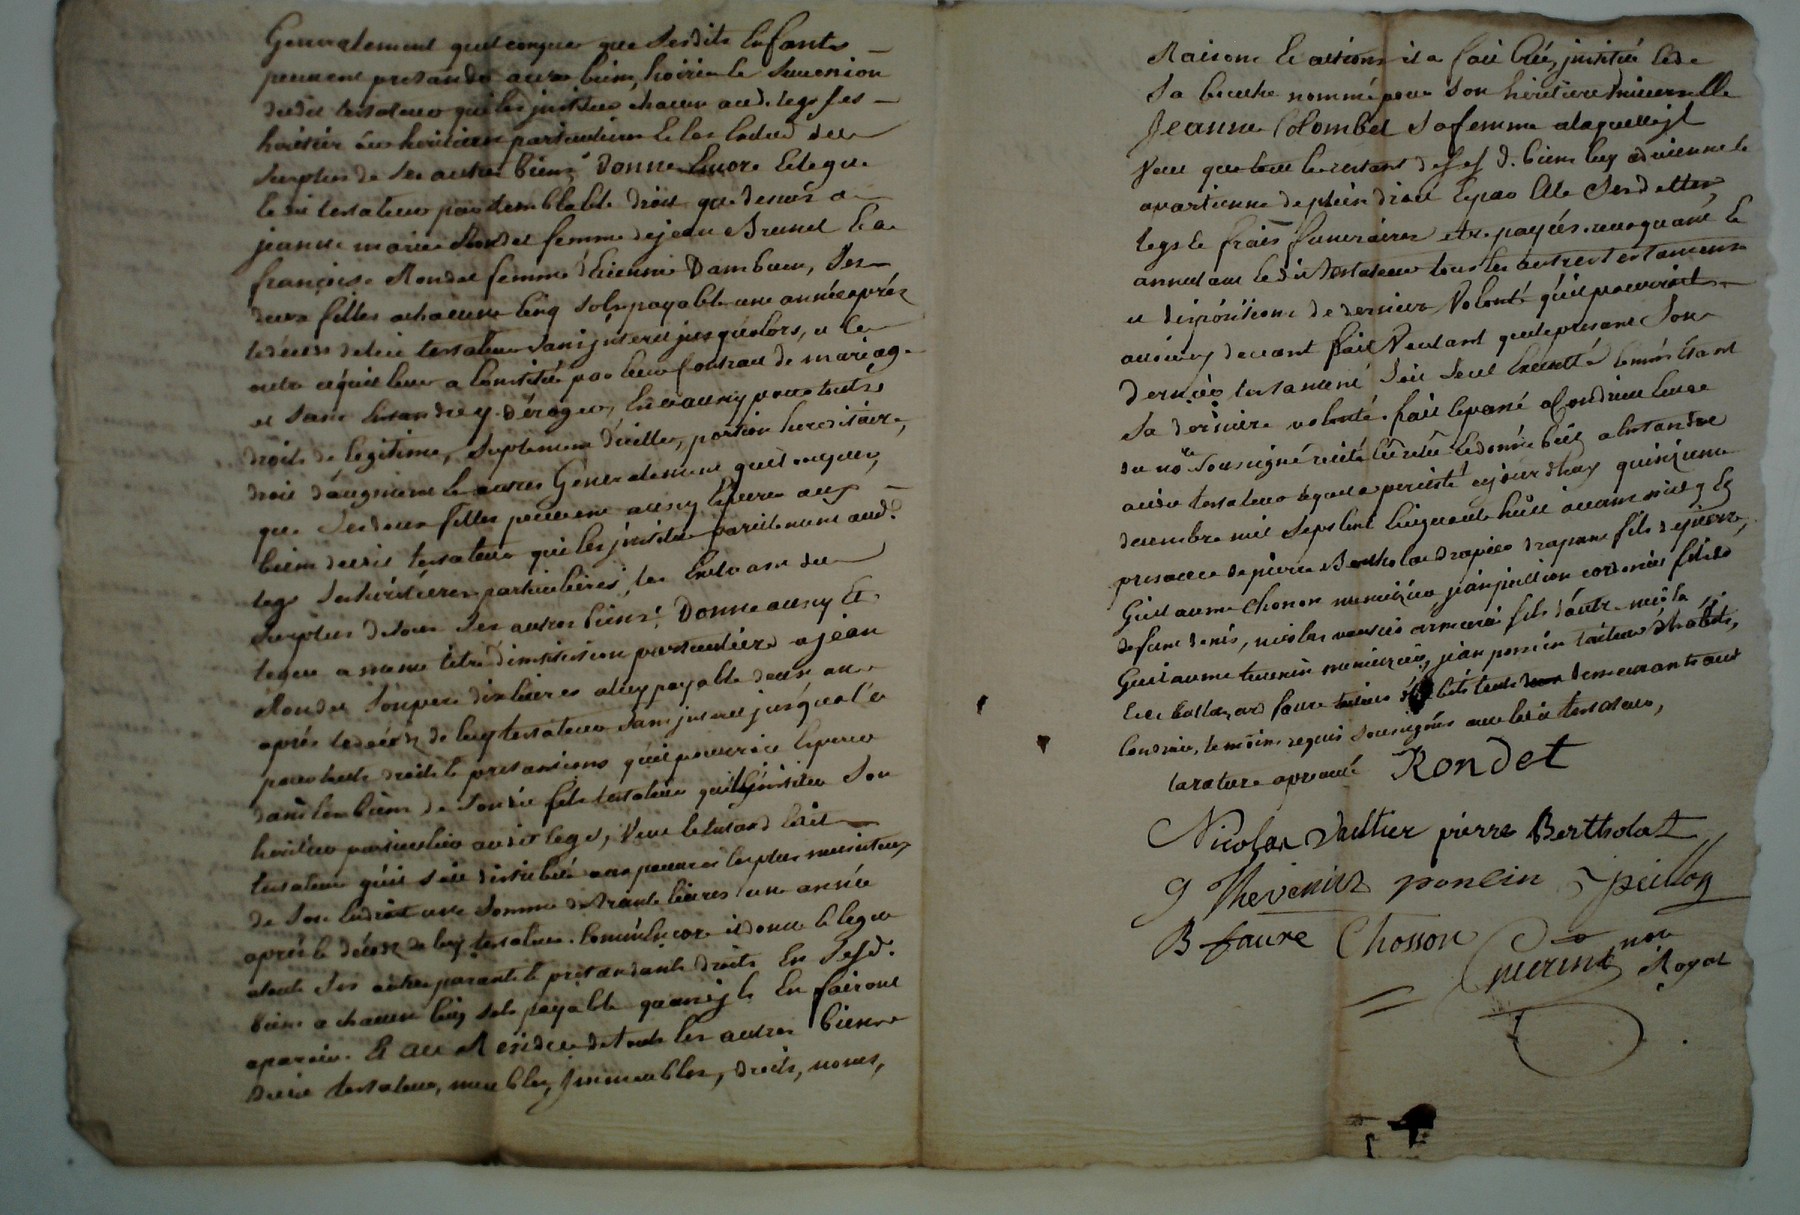 Generalement quelconques que sesdits Enfants
peuvent pretandre aux biens, hoirie et succession
dudit testateur qui les institue chacun aud. legs ses
héritiers ou héritieres particuliers et les exclud du
surplus de ses autres biens; Donne encore et legue
ledit testateur par semblable droit que dessus a
jeanne marie Rondet femme de jean Brunet et a
françoise Rondet femme d'Etienne Dambuen, ses
deux filles a chacune cinq sols payable une année après
le décès dudit testateur sans intérêt jusqu'alors, et ce
outre ce qu'il leur a constitué par leur contrat de mariage
et sans entandre y déroger, Et ce aussy pour toutes
droits de legitime, suplement d'icelle, portion hereditaire,
droit d'augment et autres Generalement quelconques,
que sesdeux filles peuvent aussy esperer aux
biens dudit testateur qui les institue pareillement aud.
legs ses héritieres particulieres, les Excluant du
surplus de tous ses autres biens; Donne aussy et
legue a meme titre d'institution particuliere a jean
Rondet son pere dix livres a luy payable deux ans
après le décès de luy testateur sans interet jusqu'alors
pour touts droits et pretansions qu'il pourroit esperer
dans les biens de son dit fils testateur qui l'institue son
héritier particulier audit legs, Veut et entand ledit
testateur qu'il soit distribué aux pauvres les plus necessiteux
de son endroit une somme de trante livres une année
après le décès de luy testateur. Comm'encore il donne et legue
a touts ses autres parants et pretandants droits En sesd.
biens a chacun cinq sols payable quand ils En fairont
aparoir. Et au Residu de touts les autres biens
dudit testateur, meubles, Immeubles, droits, noms,
Raisons et actions il a fait créé, institué et de
sa bouche nommé pour son héritiere universelle
Jeanne Colombet sa femme a laquelle il
veut que tout le restant de ses d. biens luy advienne et
apartienne de plein droit Le pao Elle ses dettes,
legs et frais funeraires etre payés. revoquant et
annulant ledit testateur tous les autres testaments
et dispositions de derniere Volonté qu'il pourroit
avoir cy devant fait Veulant que le present son
dernier testament soit seul Executté comme Etant
sa derniere volonté. fait et passé a Condrieu Etude
du nore soussigné recité leu releu et donné bien a Entandre
audit testateur lequel a percisté aujourdhuy quinzieme
decembre mil sept cent cinquante huit avant midy Es
presances de pierre Bertholat drapier drapant fils de pierre,
Guillaume Chosson menuizier, jean peillion cordonnier fils de
defunt denis, nicolas vaultier armurier fils d'autre nicolas
Guillaume tevenin menuizier, jean poncin tailleur d'habits,
Et Baltazard faure tailleur d'habits touts demeurants aud
Condrieu, temoins requis soussignés avec ledit testateur,
la rature aprouvé Rondet
Nicolas Vaultier pierre Bertholat
g Thevenin poncin J peillon
B faure Chosson
Guerin nore
Royal